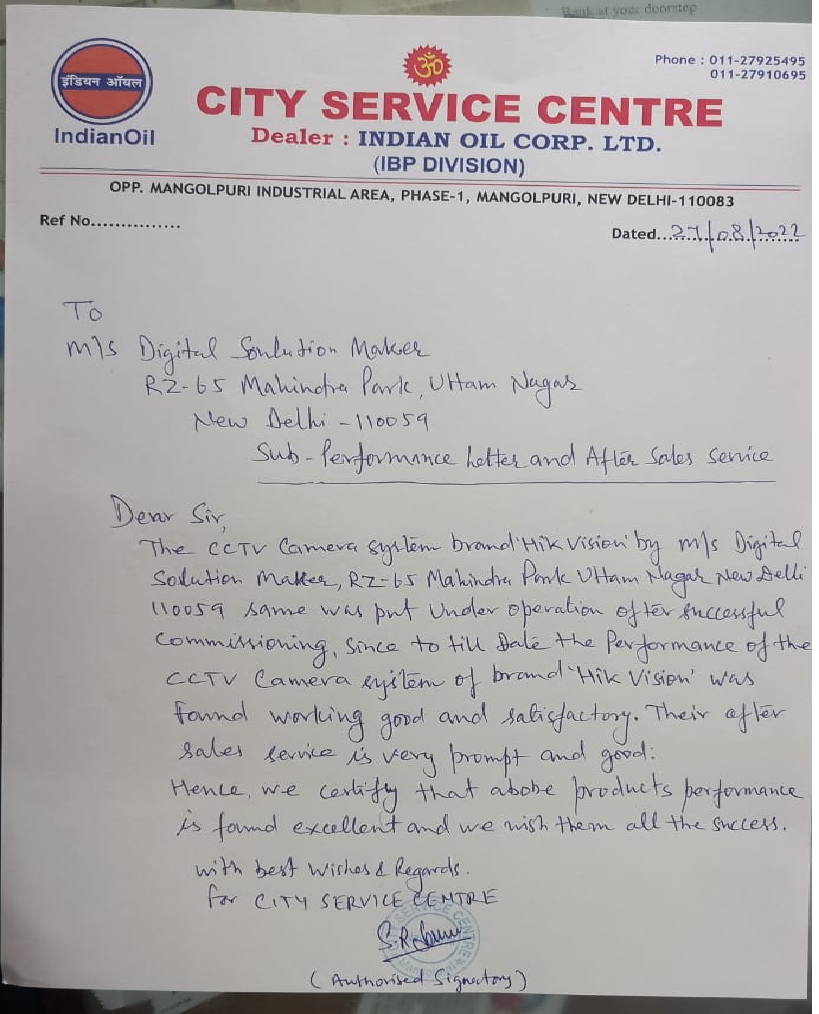 Bank at your doorstep
इंडियन ऑयल
IndianOil
ॐ
Phone : 011-27925495
011-27910695
CITY SERVICE CENTRE
Dealer : INDIAN OIL CORP. LTD.
(IBP DIVISION)
OPP. MANGOLPURI INDUSTRIAL AREA, PHASE-1, MANGOLPURI, NEW DELHI-110083
Ref No...............
Dated...27/08/2022
To
M/s Digital Soulution Maker
RZ-65 Mahindra Park, Uttam Nagar
New Delhi - 110059
Sub - Performance Letter and After Sales Service
Dear Sir,
The CCTV Camera system brand 'Hik Vision' by M/s Digital
Solution Maker, RZ-65 Mahindra Park Uttam Nagar New Delhi
110059 same was put under operation after successful
Commissioning, Since to till Date the Performance of the
CCTV Camera system of brand 'Hik Vision' was
found working good and satisfactory. Their after
sales service is very prompt and good.
Hence, we certify that above products performance
is found excellent and we wish them all the success.
With best Wishes & Regards.
for CITY SERVICE CENTRE
(Authorised Signatory)